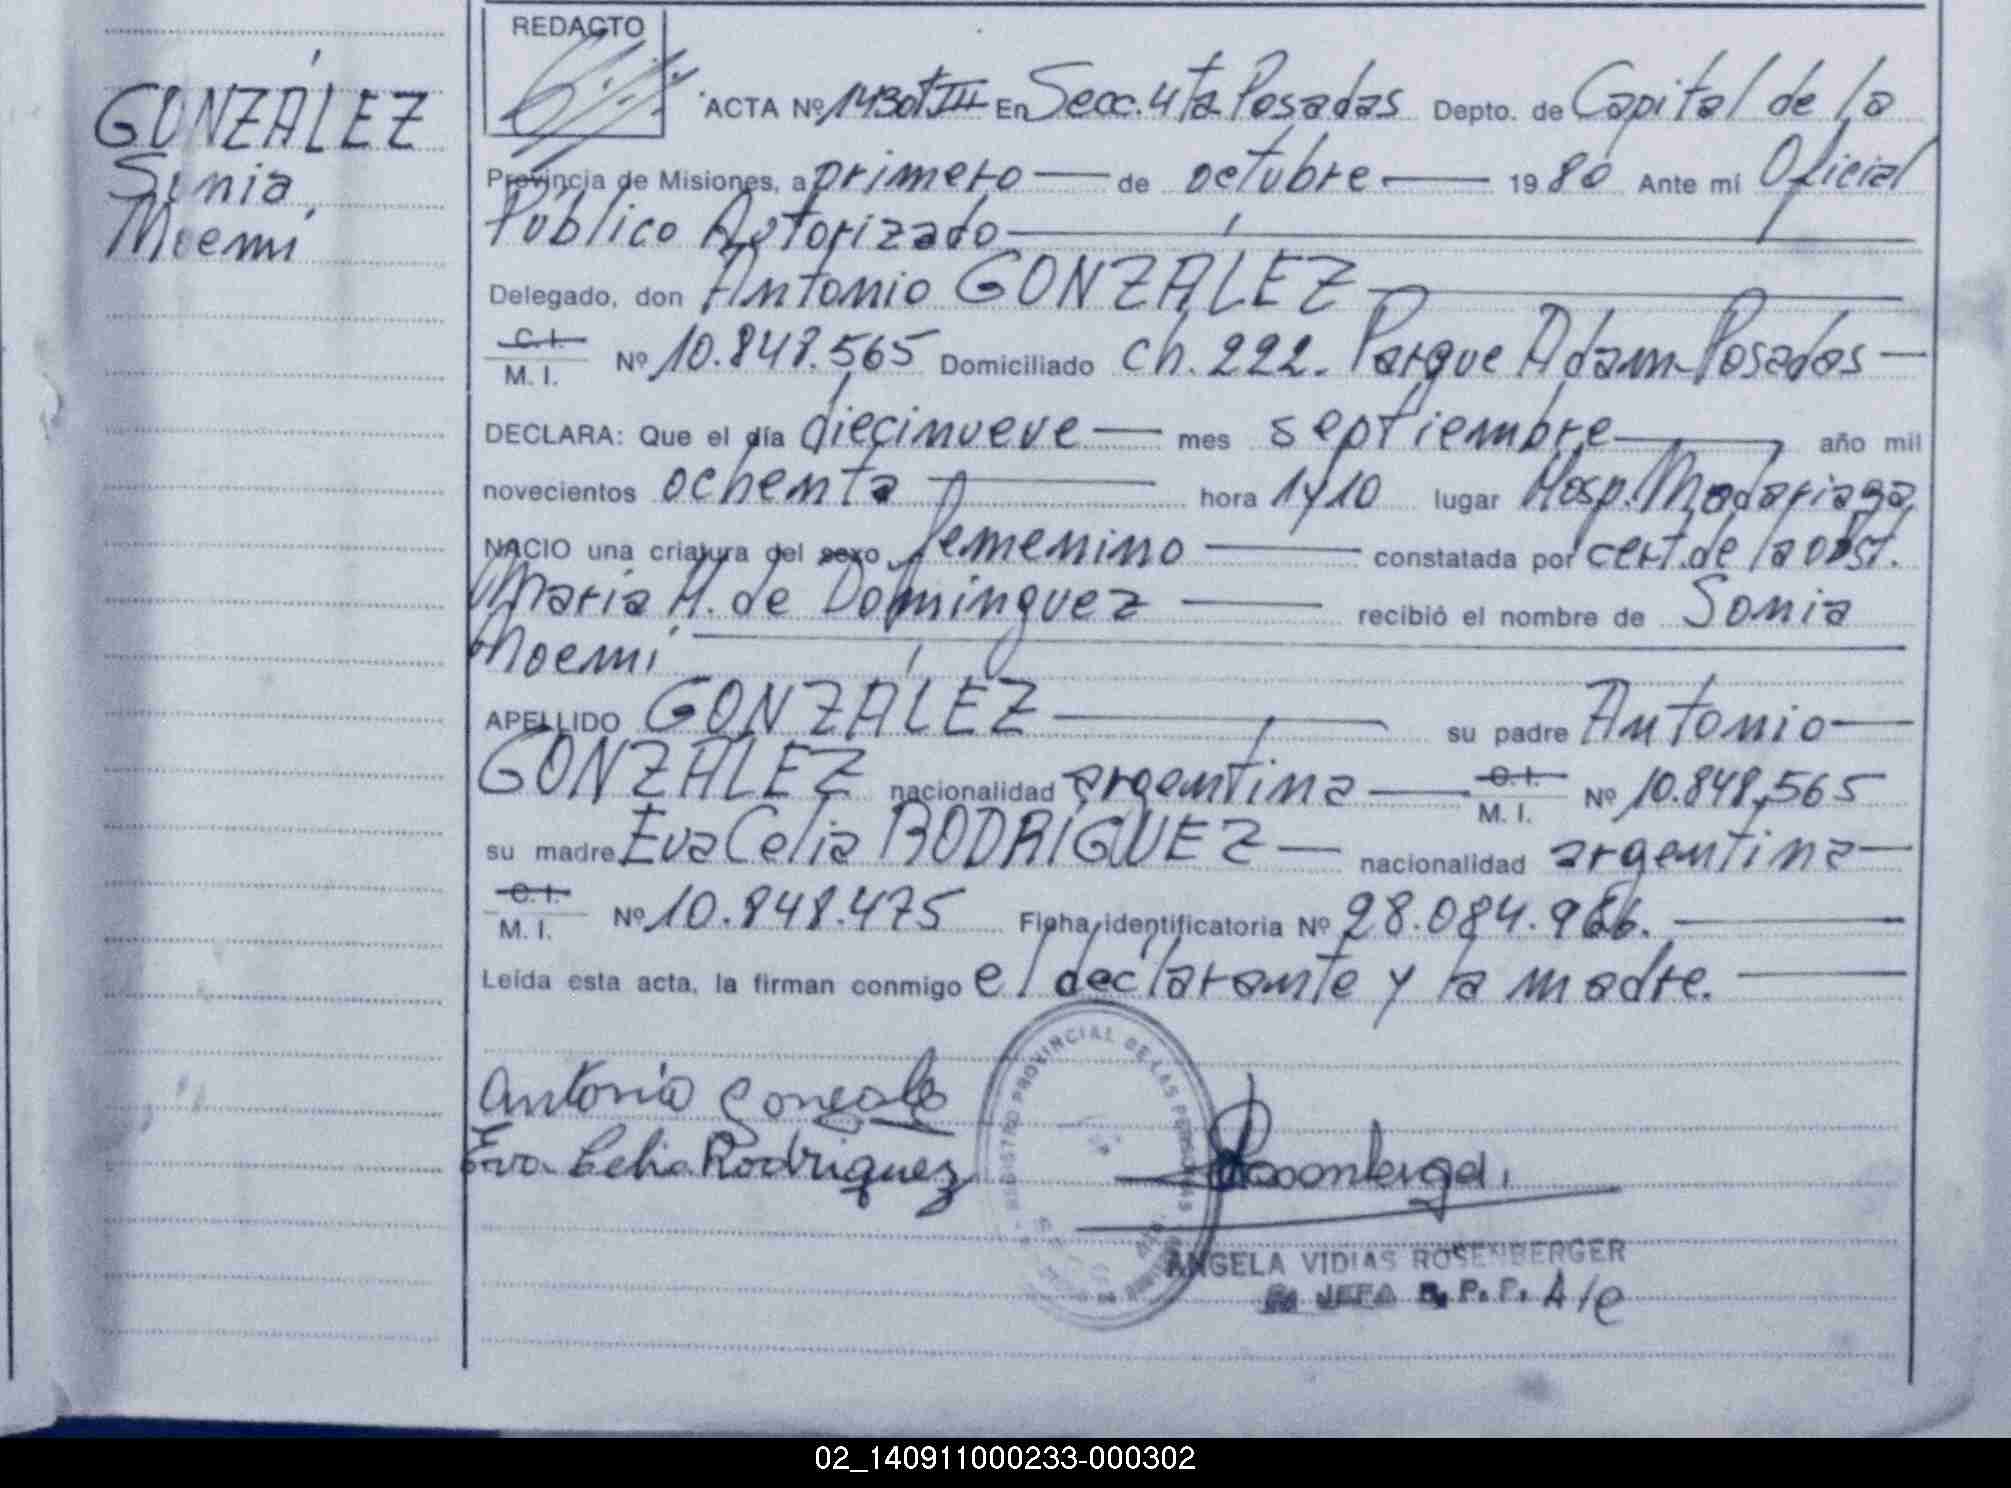 GONZÁLEZ
Sonia
Noemí
REDACTO
ACTA Nº 1430 T III En Secc. 4ta Posadas Depto. de Capital de la
Provincia de Misiones, a primero — de octubre — 19 80 Ante mí Oficial
Público Autorizado —
Delegado, don Antonio GONZÁLEZ —
C. I.
M. I. Nº 10.848.565 Domiciliado ch. 222. Parque Adam-Posadas —
DECLARA: Que el día diecinueve — mes septiembre — año mil
novecientos ochenta — hora 1y10 lugar Hosp. Madariaga
NACIO una criatura del sexo femenino — constatada por cert. de la obst.
Maria H. de Dominguez — recibió el nombre de Sonia
Noemí —
APELLIDO GONZÁLEZ — su padre Antonio —
GONZÁLEZ nacionalidad argentina — C. I.
M. I. Nº 10.848.565
su madre Eva Celia RODRÍGUEZ — nacionalidad argentina —
C. I.
M. I. Nº 10.848.475 Ficha identificatoria Nº 28.084.966. —
Leída esta acta, la firman conmigo el declarante y la madre. —
Antonio Gonzalez
Eva Celia Rodriguez
REGISTRO PROVINCIAL DE LAS PERSONAS
ANGELA VIDIAS ROSENBERGER
JEFA R. P. P. A/c
02_140911000233-000302